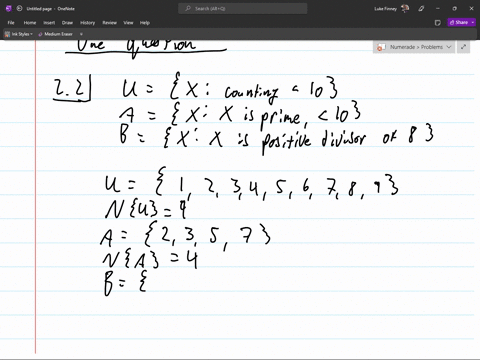 Untitled page - OneNote
Search (Alt+Q)
Luke Finney
File Home Insert Draw View Help
Share
Ink Styles
Medium Eraser
Numerade » Problems
One question
2.2 U = {X: counting < 10}
A = {X: X is prime, < 10}
B = {X: X is positive divisor of 8}
U = {1, 2, 3, 4, 5, 6, 7, 8, 9}
N{U} = 9
A = {2, 3, 5, 7}
N{A} = 4
B = {